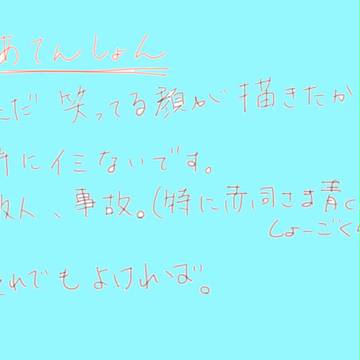 あてんしょん
ただ 笑ってる顔が 描きたか
特にイミないです。
、事故。(特に赤司さま青
しょーごく
それでもよければ。